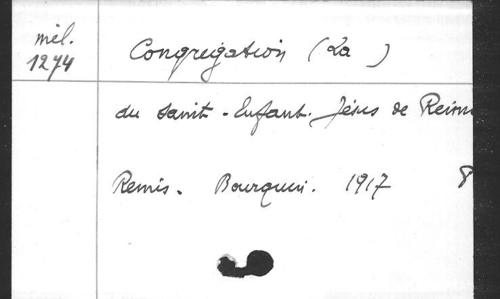 mél.
1274
Congregation (La )
du saint-Enfant-Jésus de Reims
Remis. Bourquin. 1917 8